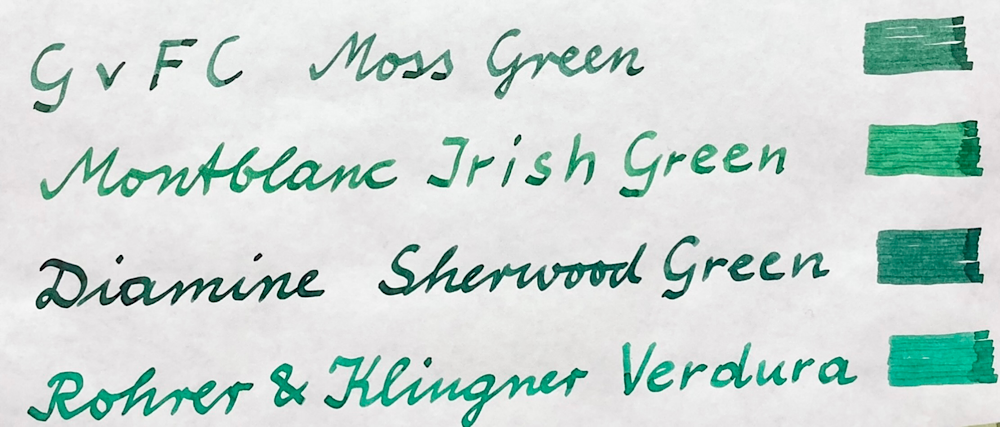 G v F C Moss Green
Montblanc Irish Green
Diamine Sherwood Green
Rohrer & Klingner Verdura